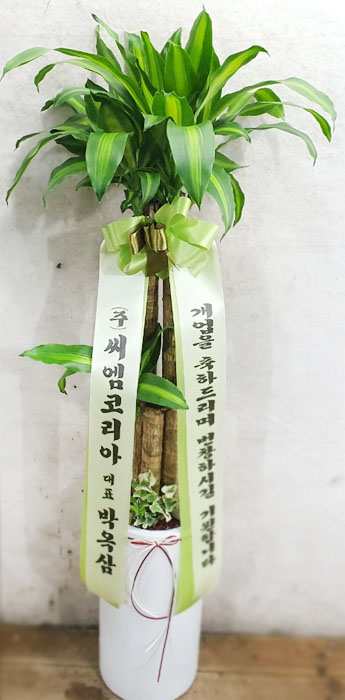 (주) 씨엠코리아 대표 박옥삼
개업을 축하드리며 번창하시길 기원합니다